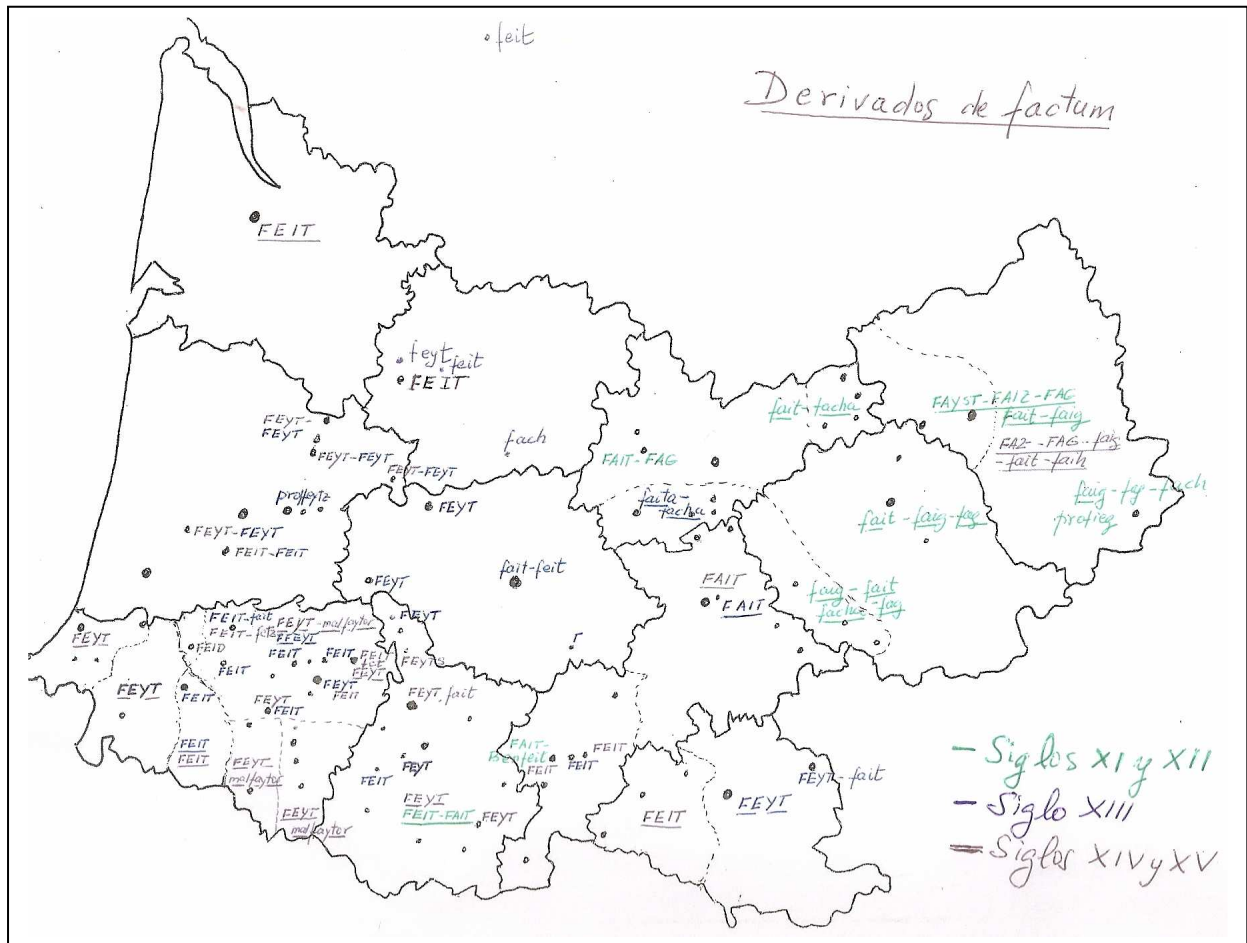 feit
Derivados de factum
FEIT
feyt
feit
FEIT
fach
FEYT-
FEYT
FEYT-FEYT
FEYT-FEYT
proffeytz
FEYT-FEYT
FEIT-FEIT
FEYT
fait-feit
FEYT
fait-facha
FAIT-FAG
faita-
facha
FAYST-FAIZ-FAG
fait-faig
FAZ--FAG-faig
-fait-faih
fait-faig-fag
faig-fait
facha-fag
FAIT
FAIT
FEYT
FEYT
FEIT-fait
FEID
FEIT
FEYT-malfaytor
FEYT
FEIT
FEIT
FEYT
FEYT
FEIT
FEYT
FEIT
FEIT
FEIT
FEIT
FEYT-
malfaytor
FEYT
malfaytor
FEYT
FEYTS
FEYT, fait
FEIT
FEYT
FEYT
FEIT-FAIT
FEYT
FAIT-
Benfeit
FEIT
FEIT
FEIT
FEIT
FEYT
FEYT-fait
- Siglos XI y XII
- Siglo XIII
- Siglos XIV y XV